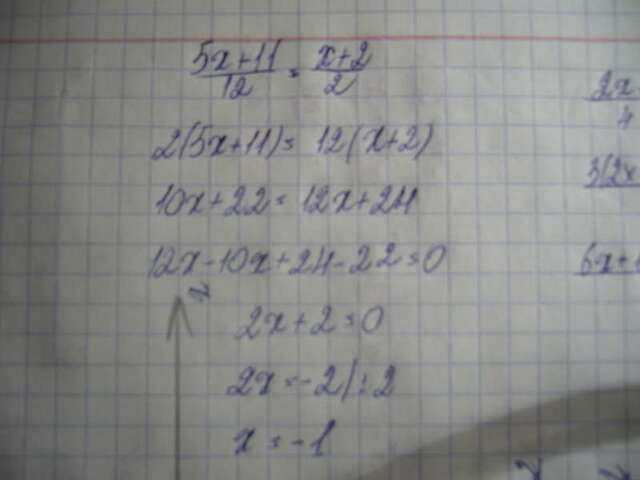 5x+11/12 = x+2/2
2(5x+11)= 12(x+2)
10x+22= 12x+24
12x-10x+24-22=0
2x+2=0
2x=-2/:2
x=-1
2x
4
3(2x
6x+